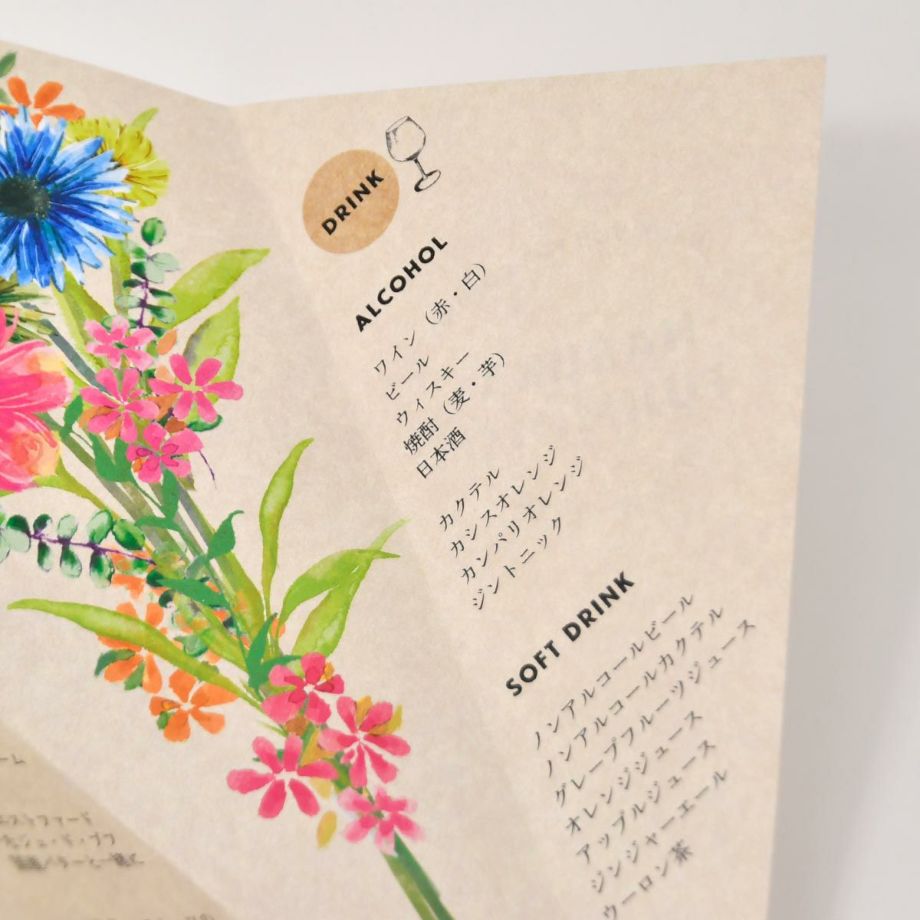 DRINK
ALCOHOL
ワイン（赤・白）
ビール
ウィスキー
焼酎（麦・芋）
日本酒
カクテル
カシスオレンジ
カンパリオレンジ
ジントニック
SOFT DRINK
ノンアルコールビール
ノンアルコールカクテル
グレープフルーツジュース
オレンジジュース
アップルジュース
ジンジャーエール
ウーロン茶
ーム